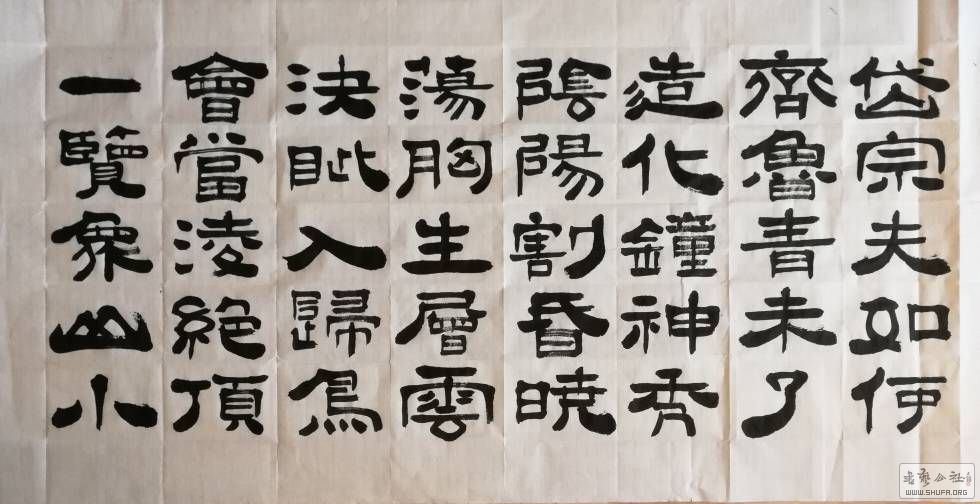 岱宗夫如何
齊魯青未了
造化鐘神秀
陰陽割昏曉
蕩胸生層雲
決眦入歸鳥
會當淩絕頂
一覽衆山小
WWW.SHUFA.ORG